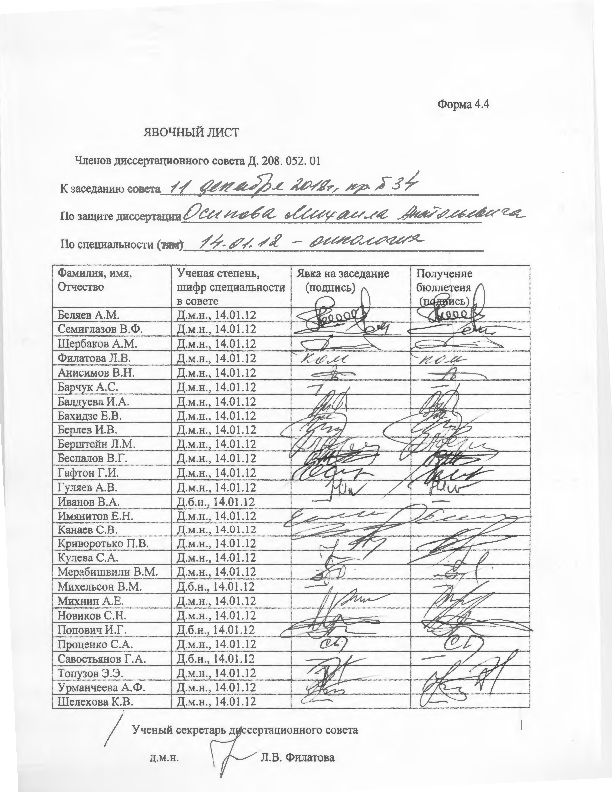 Форма 4.4
ЯВОЧНЫЙ ЛИСТ
Членов диссертационного совета Д. 208. 052. 01
К заседанию совета 11 декабря 2018г, пр 34
По защите диссертации Осипова Михаила Анатольевича
По специальности (там) 14.01.12 – онкология
Фамилия, имя. Отчество Ученая степень, шифр специальности в совете Явка на заседание (подпись) Получение бюллетеня (подпись)
Беляев А.М. Д.м.н., 14.01.12
Семиглазов В.Ф. Д.м.н., 14.01.12
Щербаков А.М. Д.м.н., 14.01.12
Филатова Л.В. Д.м.н., 14.01.12 ком ком
Анисимов В.Н. Д.м.н., 14.01.12
Барчук А.С. Д.м.н., 14.01.12
Балдуева И.А. Д.м.н., 14.01.12
Бахидзе Е.В. Д.м.н., 14.01.12
Берлев И.В. Д.м.н., 14.01.12
Берштейн Л.М. Д.м.н., 14.01.12
Беспалов В.Г. Д.м.н., 14.01.12
Гафтон Г.И. Д.м.н., 14.01.12
Гуляев А.В. Д.м.н., 14.01.12
Иванов В.А. Д.б.н., 14.01.12
Имянитов Е.Н. Д.м.н., 14.01.12
Канаев С.В. Д.м.н., 14.01.12
Криворотько П.В. Д.м.н., 14.01.12
Кулева С.А. Д.м.н., 14.01.12
Мерабишвили В.М. Д.м.н., 14.01.12
Михельсон В.М. Д.б.н., 14.01.12
Михнин А.Е. Д.м.н., 14.01.12
Новиков С.Н. Д.м.н., 14.01.12
Попович И.Г. Д.б.н., 14.01.12
Проценко С.А. Д.м.н., 14.01.12
Савостьянов Г.А. Д.б.н., 14.01.12
Топузов Э.Э. Д.м.н., 14.01.12
Урманчеева А.Ф. Д.м.н., 14.01.12
Шелехова К.В. Д.м.н., 14.01.12
Ученый секретарь диссертационного совета
д.м.н. Л.В. Филатова